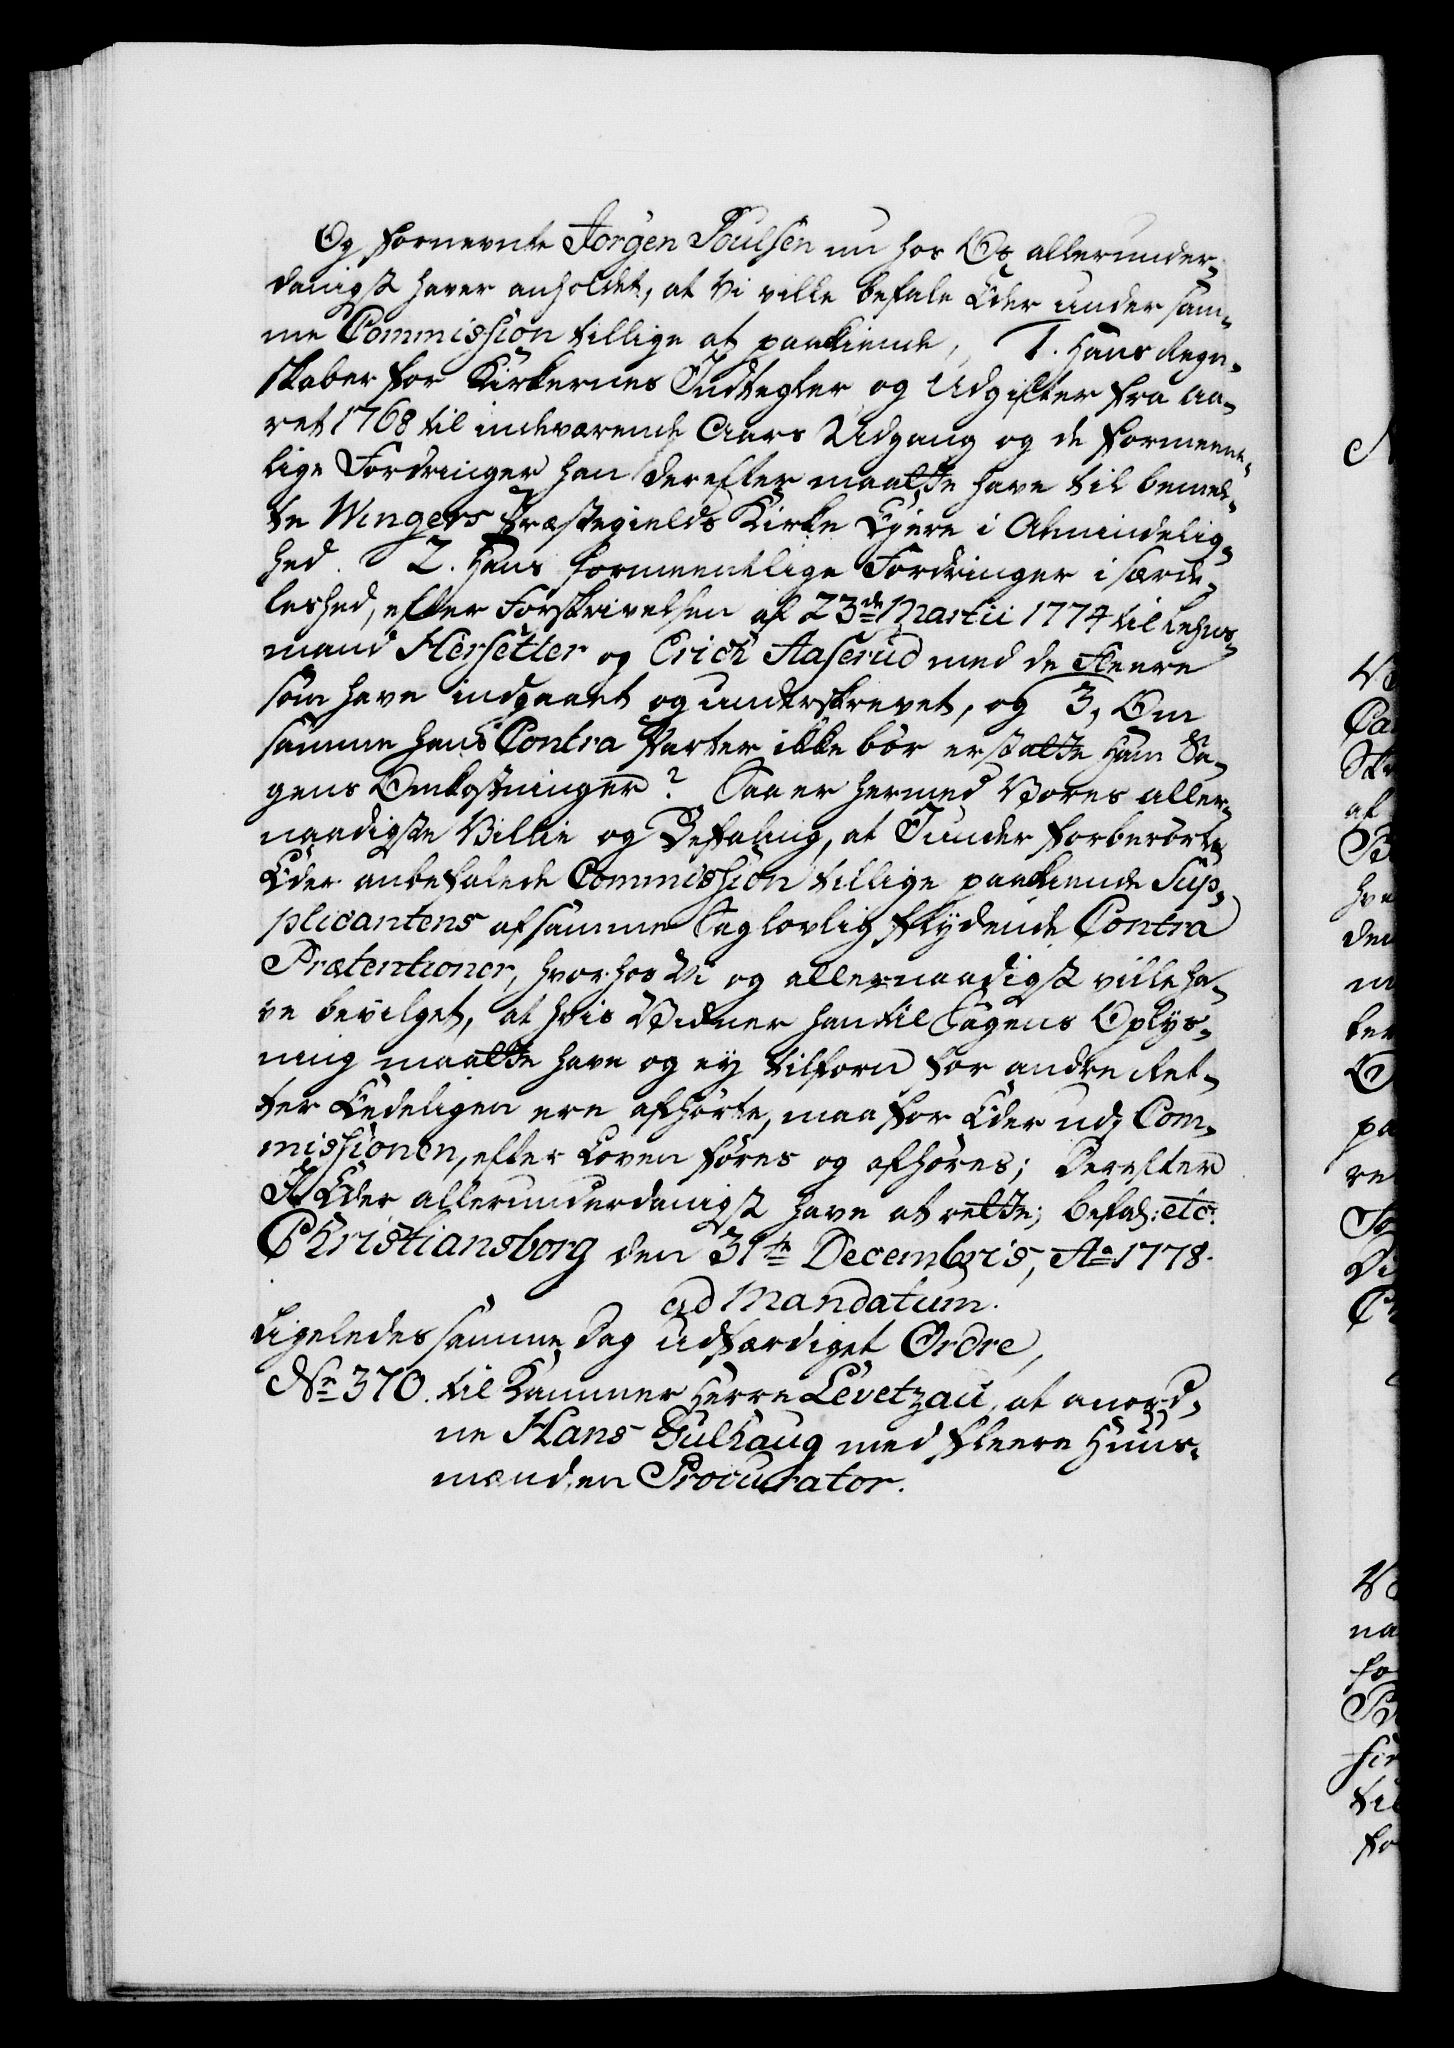 Og fornevnte Jörgen Poulsen nu hos Os allerunder-
danigst haver anholdet, at Vi ville befale Eder under sam-
me Commission tillige at paakiende, 1. Hans Regn-
skaber for Kirkernes Indtegter og Udgifter fra Aa-
ret 1768 til indeværende Aars Udgang og de formeent-
lige Fordringer han derefter maatte have til bemel-
te Wingers Præstegields Kirke Ejere i Almindelig-
hed. 2. Hans formeentlige Fordringer i særde-
leshed, efter Forskrivelsen af 23de Martii 1774 til Lehns-
mand Hersetter og Erich Aaserud med de fleere
som have indgaaet og underskrevet, og 3, Om
samme hans Contra Parter ikke bör erstatte ham Sa-
gens Omkostninger? Saa er hermed Vores aller-
naadigste Villie og Befaling, at I under forberörte
Eder anbefalede Commission tillige paakiende Sup-
plicantens af samme Sag lovlig flydende Contra
Prætentioner, hvorhos Vi og allernaadigst ville ha-
ve bevilget, at hvis Vidner han til Sagens Oplys-
ning maatte have og ey tilforn for andre Ret-
ter Eedeligen ere afhörte, maa for Eder udi Com-
missionen, efter Loven föres og afhöres; Derefter
I Eder allerunderdanigst have at rette; befal: etc.
Christiansborg den 31te Decembris, Ao 1778.
ad Mandatum.
Ligeledes samme Dag udfærdiget Ordre,
No 370. til Kammer Herre Levetzau, at anord-
ne Hans Gulhaug med fleere Huus-
mænd, en Procurator.